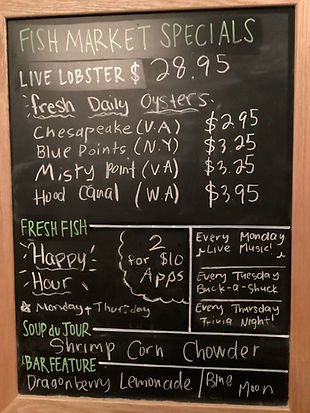 FISH MARKET SPECIALS
LIVE LOBSTER $ 28.95
fresh Daily Oysters:
Chesapeake (VA) $2.95
Blue Points (N.Y) $3.25
Misty Point (VA) $3.25
Hood Canal (WA) $3.95
FRESH FISH
Happy
Hour
& Monday + Thursday
2
for $10
Apps
Every Monday
Live Music!
Every Tuesday
Buck-a-Shuck
Every Thursday
Trivia Night!
SOUP du JOUR
Shrimp Corn Chowder
BAR FEATURE
Dragonberry Lemonade / Blue Moon